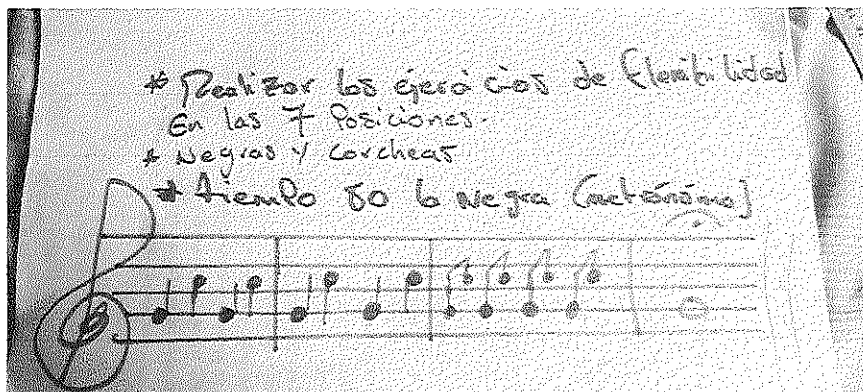 * Realizar los ejercicios de flexibilidad
En las 7 Posiciones.
* Negras y Corcheas
* tiempo 80 la Negra (metrónomo)